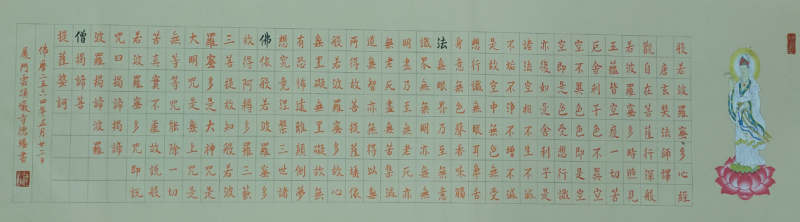 般若波羅蜜多心經
唐玄奘法師譯
觀自在菩薩行深般
若波羅蜜多時照見
五蘊皆空度一切苦
厄舍利子色不異空
空不異色色即是空
空即是色受想行識
亦復如是舍利子是
諸法空相不生不滅
不垢不淨不增不減
是故空中無色無受
想行識無眼耳鼻舌
身意無色聲香味觸
法無眼界乃至無意
識界無無明亦無無
明盡乃至無老死亦
無老死盡無苦集滅
道無智亦無得以無
所得故菩提薩埵依
般若波羅蜜多故心
無罣礙無罣礙故無
有恐怖遠離顛倒夢
想究竟涅槃三世諸
佛依般若波羅蜜多
故得阿耨多羅三藐
三菩提故知般若波
羅蜜多是大神咒是
大明咒是無上咒是
無等等咒能除一切
苦真實不虛故說般
若波羅蜜多咒即說
咒曰揭諦揭諦
波羅揭諦波羅
僧揭諦菩
提薩婆訶
佛曆二五六四年三月廿三日
廈門雲頂巖寺德書